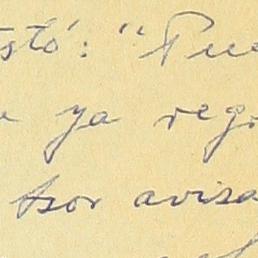 stó: "Fue
ya reg
tsor avisa